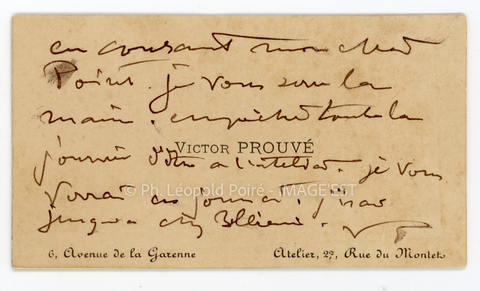 en causant mon cher
Poiré. je vous serre la
main. empêché toute la
VICTOR PROUVÉ
journée d'être à l'atelier. je vous
© Ph. Léopold Poiré - IMAGE'EST
verrai en journée. j'irai
jusque chez
VP
6, Avenue de la Garenne
Atelier, 29, Rue du Montet.